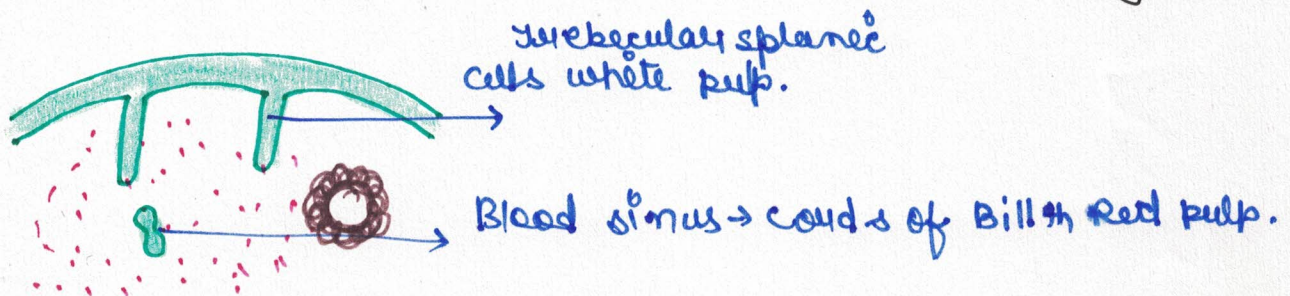 Trebecular splanic
cells white pulp.
Blood sinus → cords of Billth Red pulp.